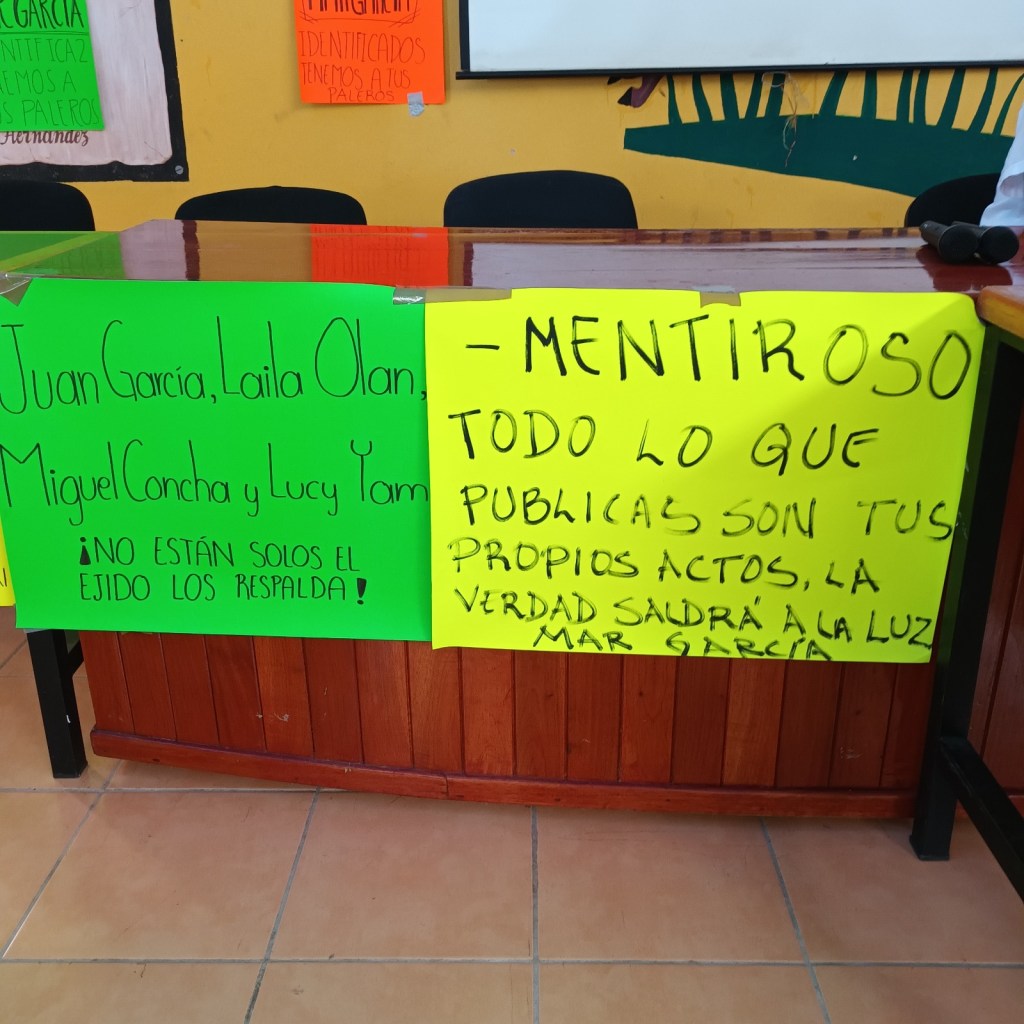 GARCÍA
TENEMOS A
PALEROS
Hernández
MAR GARCÍA
IDENTIFICADOS
TENEMOS A TUS
PALEROS
Juan García, Laila Olan,
Miguel Concha y Lucy Yam
¡NO ESTÁN SOLOS EL
EJIDO LOS RESPALDA!
- MENTIROSO
TODO LO QUE
PUBLICAS SON TUS
PROPIOS ACTOS, LA
VERDAD SALDRÁ A LA LUZ
MAR GARCÍA